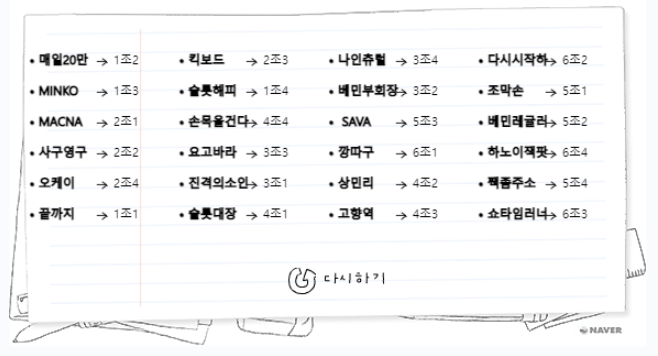 • 매일20만 → 1조2 • 킥보드 → 2조3 • 나인츄럴 → 3조4 • 다시시작하 → 6조2
• MINKO → 1조3 • 슬롯해피 → 1조4 • 베민부회장 → 3조2 • 조막손 → 5조1
• MACNA → 2조1 • 손목을건다 → 4조4 • SAVA → 5조3 • 베민레귤러 → 5조2
• 사구영구 → 2조2 • 요고바라 → 3조3 • 깡따구 → 6조1 • 하노이잭팟 → 6조4
• 오케이 → 2조4 • 진격의소인 → 3조1 • 상민리 → 4조2 • 쫵좀주소 → 5조4
• 끝까지 → 1조1 • 슬롯대장 → 4조1 • 고향역 → 4조3 • 쇼타임러너 → 6조3
다시하기
NAVER